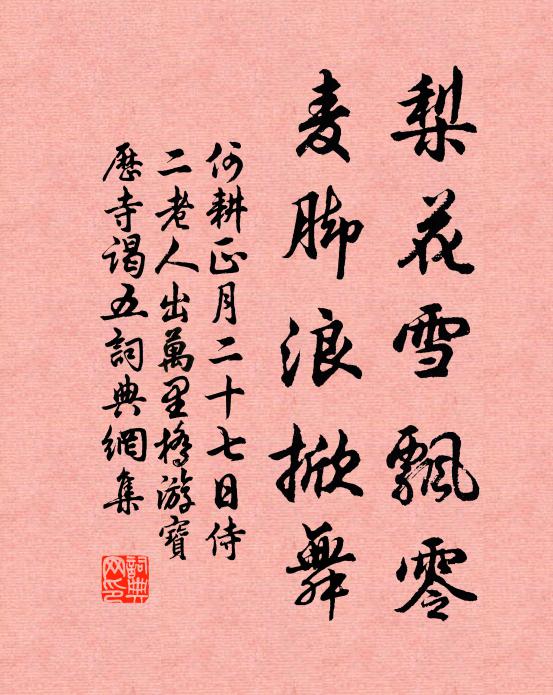 梨花雪飄零
麦脚浪掀舞
何耕正月二十七日侍
二老人出萬里橋游寶
歷寺謁五詞典網集
詞典
网印